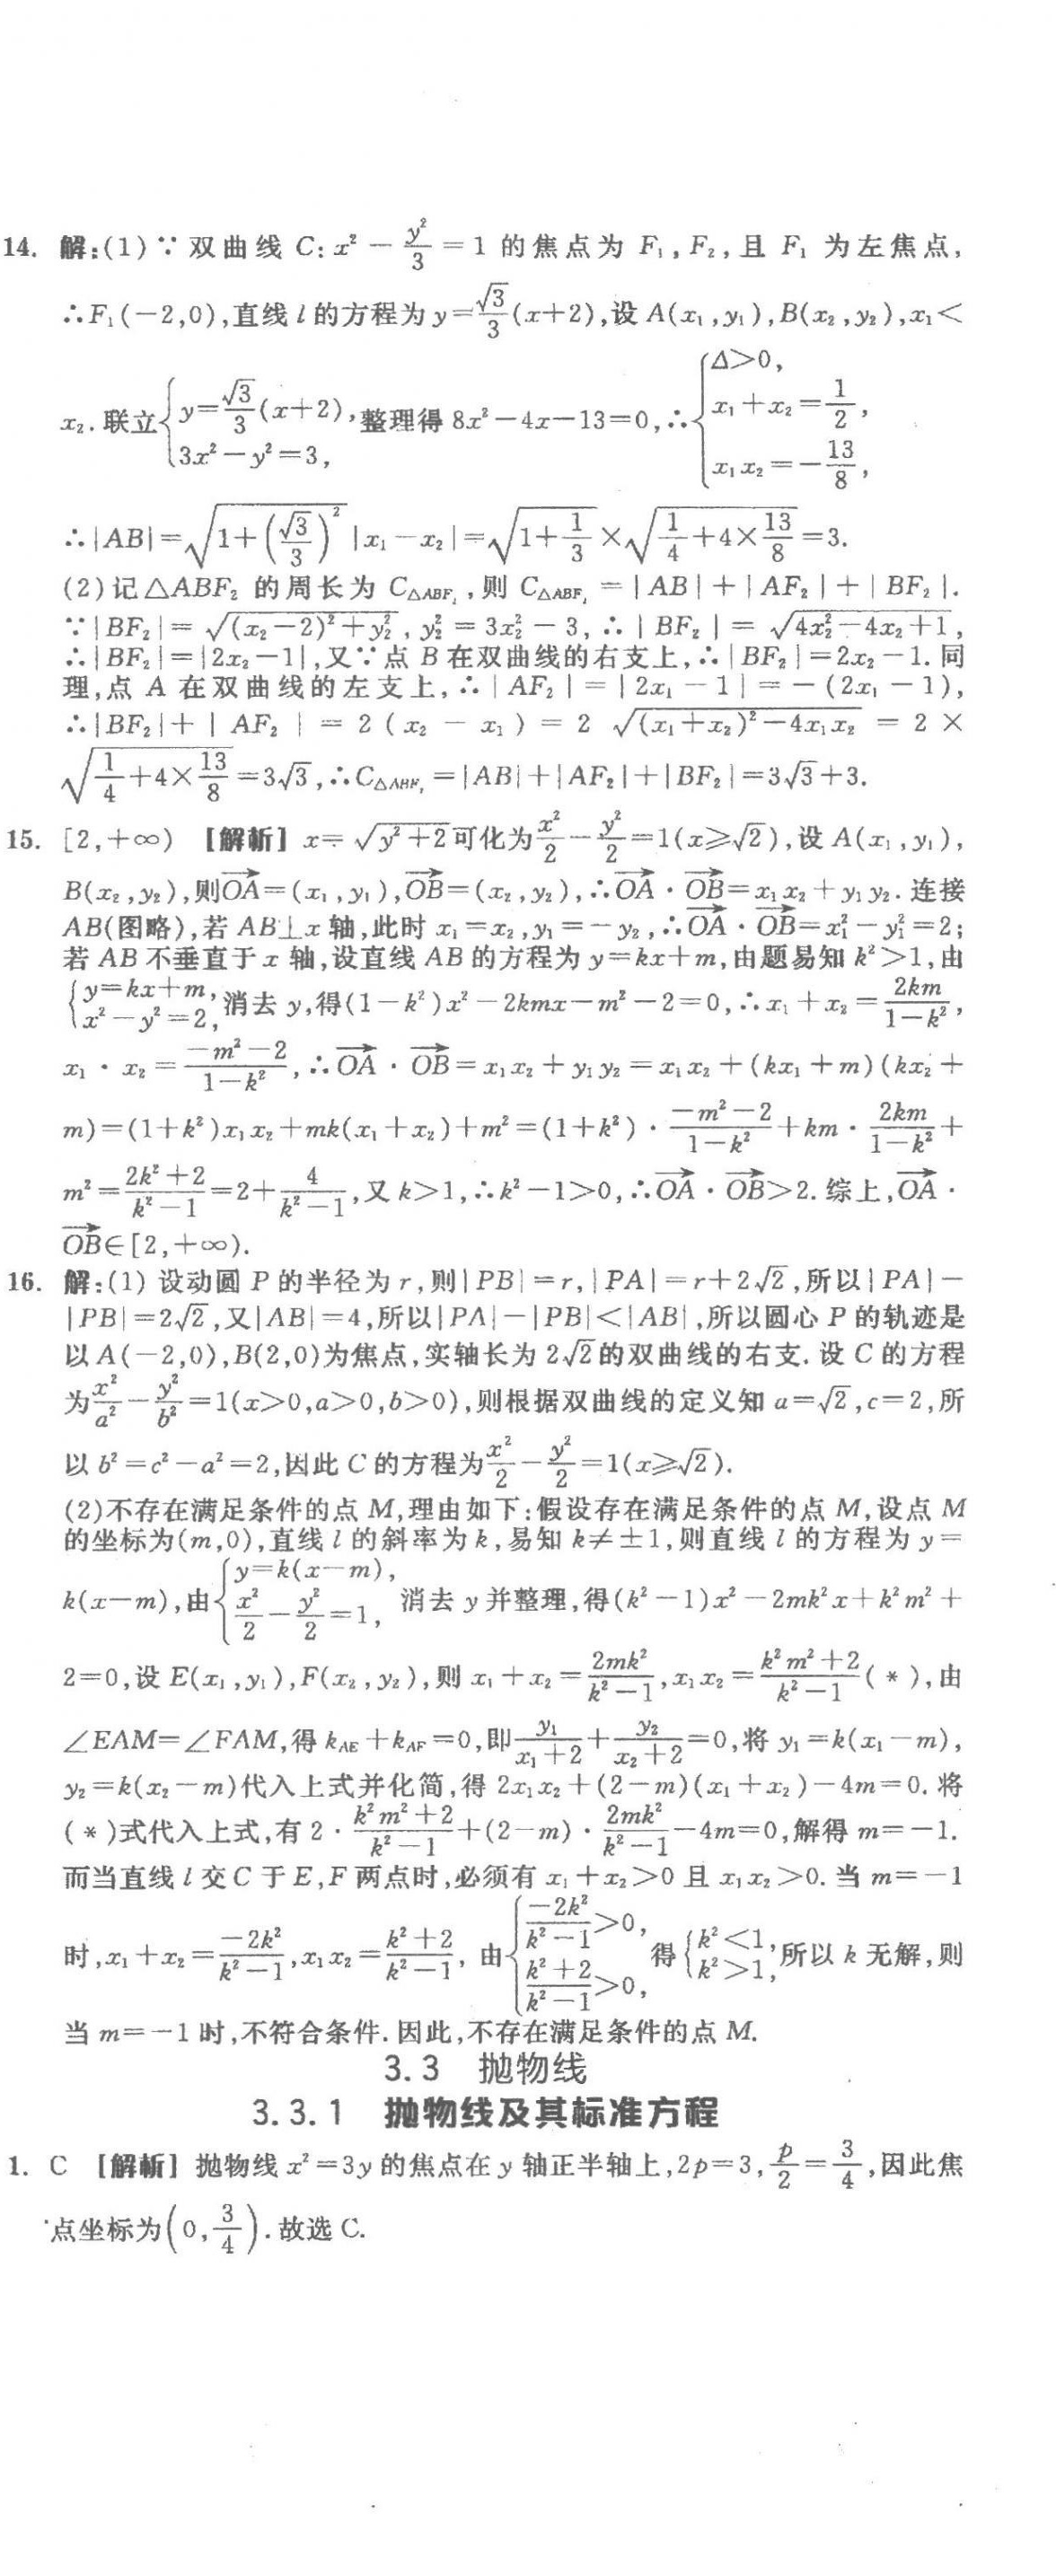 14. 解:(1)∵双曲线 C: x² − y²/3 = 1 的焦点为 F₁,F₂,且 F₁ 为左焦点,
∴F₁(−2,0),直线 l 的方程为 y=√3/3(x+2),设 A(x₁,y₁),B(x₂,y₂),x₁<
x₂. 联立{y=√3/3(x+2), 3x²−y²=3, 整理得 8x²−4x−13=0,∴{Δ>0, x₁+x₂=1/2, x₁x₂=−13/8,
∴|AB|=√(1+(√3/3)²)|x₁−x₂|=√(1+1/3)×√(1/4+4×13/8)=3.
(2)记△ABF₂ 的周长为 C△ABF₂,则 C△ABF₂=|AB|+|AF₂|+|BF₂|.
∵|BF₂|=√((x₂−2)²+y₂²),y₂²=3x₂²−3,∴|BF₂|=√(4x₂²−4x₂+1),
∴|BF₂|=|2x₂−1|,又∵点 B 在双曲线的右支上,∴|BF₂|=2x₂−1. 同
理,点 A 在双曲线的左支上,∴|AF₂|=|2x₁−1|=−(2x₁−1),
∴|BF₂|+|AF₂|=2(x₂−x₁)=2√((x₁+x₂)²−4x₁x₂)=2×
√(1/4+4×13/8)=3√3,∴C△ABF₂=|AB|+|AF₂|+|BF₂|=3√3+3.
15. [2,+∞) [解析] x=√(y²+2)可化为x²/2−y²/2=1(x≥√2),设 A(x₁,y₁),
B(x₂,y₂),则OA→=(x₁,y₁),OB→=(x₂,y₂),∴OA→·OB→=x₁x₂+y₁y₂. 连接
AB(图略),若 AB⊥x 轴,此时 x₁=x₂,y₁=−y₂,∴OA→·OB→=x₁²−y₁²=2;
若 AB 不垂直于 x 轴,设直线 AB 的方程为 y=kx+m,由题易知 k²>1,由
{y=kx+m, x²−y²=2, 消去 y,得(1−k²)x²−2kmx−m²−2=0,∴x₁+x₂=2km/(1−k²),
x₁·x₂=(−m²−2)/(1−k²),∴OA→·OB→=x₁x₂+y₁y₂=x₁x₂+(kx₁+m)(kx₂+
m)=(1+k²)x₁x₂+mk(x₁+x₂)+m²=(1+k²)·(−m²−2)/(1−k²)+km·2km/(1−k²)+
m²=(2k²+2)/(k²−1)=2+4/(k²−1),又 k>1,∴k²−1>0,∴OA→·OB→>2. 综上,OA→·
OB→∈[2,+∞).
16. 解:(1)设动圆 P 的半径为 r,则|PB|=r,|PA|=r+2√2,所以|PA|−
|PB|=2√2,又|AB|=4,所以|PA|−|PB|<|AB|,所以圆心 P 的轨迹是
以 A(−2,0),B(2,0)为焦点,实轴长为 2√2的双曲线的右支. 设 C 的方程
为x²/a²−y²/b²=1(x>0,a>0,b>0),则根据双曲线的定义知 a=√2,c=2,所
以 b²=c²−a²=2,因此 C 的方程为x²/2−y²/2=1(x≥√2).
(2)不存在满足条件的点 M,理由如下:假设存在满足条件的点 M,设点 M
的坐标为(m,0),直线 l 的斜率为 k,易知 k≠±1,则直线 l 的方程为 y=
k(x−m),由{y=k(x−m), x²/2−y²/2=1, 消去 y 并整理,得(k²−1)x²−2mk²x+k²m²+
2=0,设 E(x₁,y₁),F(x₂,y₂),则 x₁+x₂=2mk²/(k²−1),x₁x₂=(k²m²+2)/(k²−1)(*),由
∠EAM=∠FAM,得 k_AE+k_AF=0,即y₁/(x₁+2)+y₂/(x₂+2)=0,将 y₁=k(x₁−m),
y₂=k(x₂−m)代入上式并化简,得 2x₁x₂+(2−m)(x₁+x₂)−4m=0. 将
(*)式代入上式,有 2·(k²m²+2)/(k²−1)+(2−m)·2mk²/(k²−1)−4m=0,解得 m=−1.
而当直线 l 交 C 于 E,F 两点时,必须有 x₁+x₂>0 且 x₁x₂>0. 当 m=−1
时,x₁+x₂=−2k²/(k²−1),x₁x₂=(k²+2)/(k²−1),由{−2k²/(k²−1)>0, (k²+2)/(k²−1)>0, 得{k²<1, k²>1, 所以 k 无解,则
当 m=−1 时,不符合条件. 因此,不存在满足条件的点 M.
3.3 抛物线
3.3.1 抛物线及其标准方程
1. C [解析] 抛物线 x²=3y 的焦点在 y 轴正半轴上,2p=3,p/2=3/4,因此焦
点坐标为(0,3/4).故选 C.